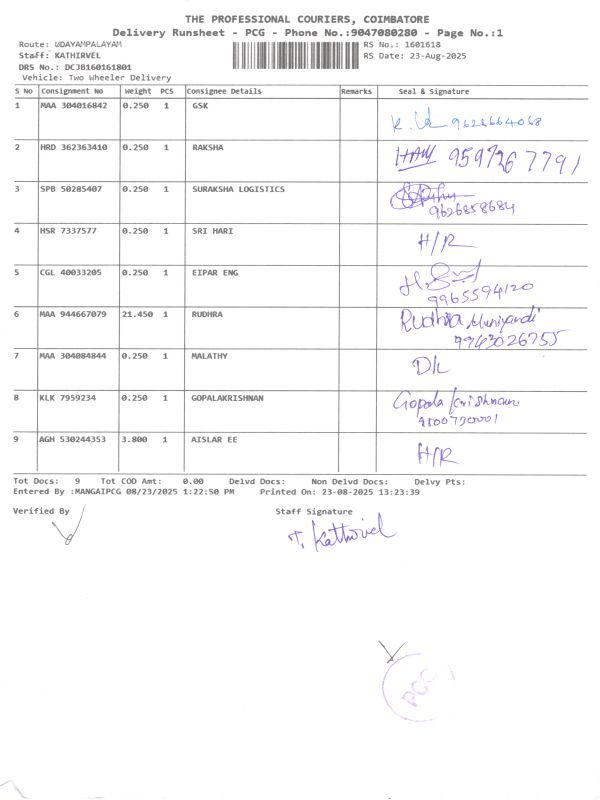 THE PROFESSIONAL COURIERS, COIMBATORE
Delivery Runsheet - PCG - Phone No.:9047080280 - Page No.:1
Route: UDAYAMPALAYAM RS No.: 1601618
Staff: KATHIRVEL RS Date: 23-Aug-2025
DRS No.: DCJB160161801
Vehicle: Two Wheeler Delivery
S No Consignment No Weight PCS Consignee Details Remarks Seal & Signature
1 MAA 304016842 0.250 1 GSK
9628664068
2 HRD 362363410 0.250 1 RAKSHA
9597267791
3 SPB 50285407 0.250 1 SURAKSHA LOGISTICS
9626858684
4 HSR 7337577 0.250 1 SRI HARI
H/R
5 CGL 40033205 0.250 1 EIPAR ENG
9965594120
6 MAA 944667079 21.450 1 RUDHRA Rudhra
9943026755
7 MAA 304084844 0.250 1 MALATHY
8 KLK 7959234 0.250 1 GOPALAKRISHNAN
9 AGH 530244353 3.800 1 AISLAR EE
H/R
Tot Docs: 9 Tot COD Amt: 0.00 Delvd Docs: Non Delvd Docs: Delvy Pts:
Entered By :MANGAIPCG 08/23/2025 1:22:50 PM Printed On: 23-08-2025 13:23:39
Verified By Staff Signature
T. Kathirvel
PCG